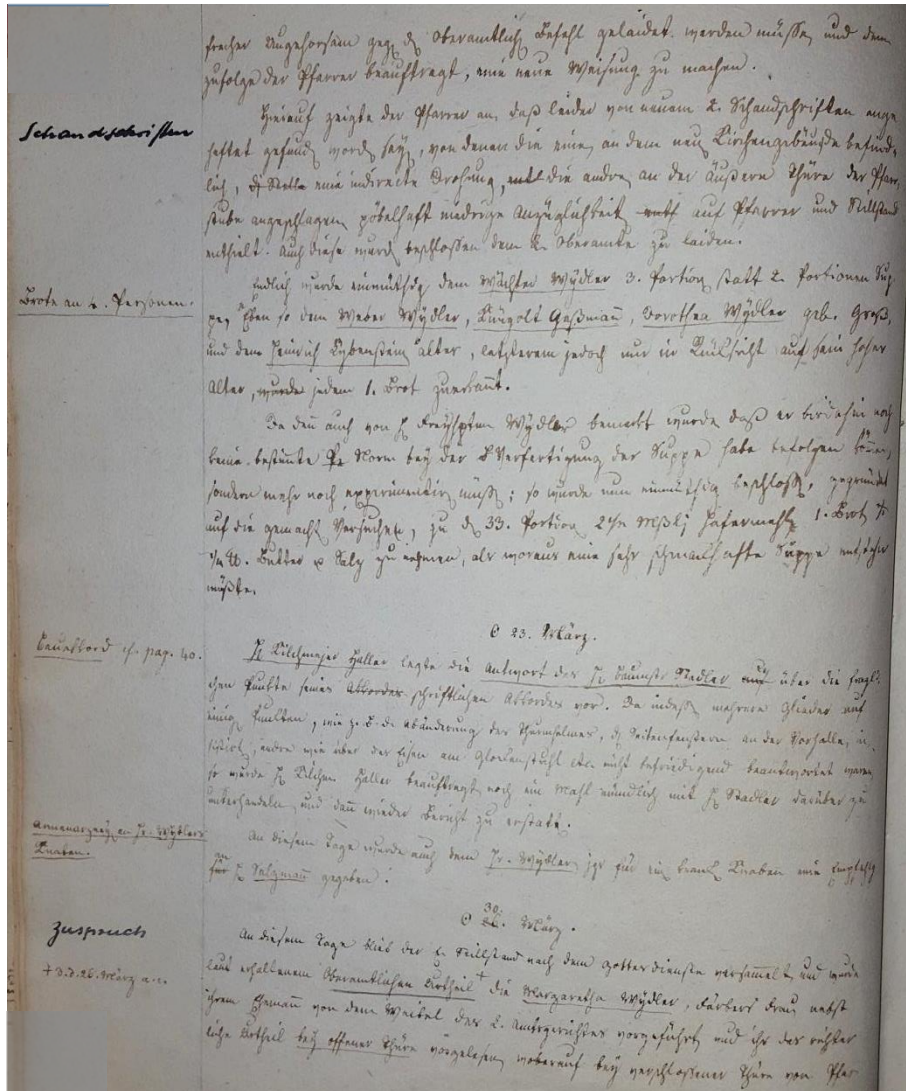 frecher Ungehorsam geg. d. Oberamtlich. Befehl geleidet werden müsse, und dem
zufolge der Pfarrer beauftragt, eine neue Weisung zu machen.
Schandschriften
Hierauf zeigte der Pfarrer an, daß leider von neuem 2. Schandschriften ange
heftet gefund. word. sey, von denen die eine, an dem neu Kirchengebäude befind-
lich, eine indirecte Drohung, die andre, an der äußern Thüre der Pfarr-
stube angeschlagen, pöbelhaft niedrige Anzüglichkeit auf Pfarrer und Stillstand
enthielt. Auch diese wurd. beschlossen dem L. Oberamte zu leiden.
Brote an 4. Personen.
Endlich wurde einmüthig dem Wächter Wydler 3. Portion. statt 2. Portionen Sup-
pe, Eben so dem Weber Wydler, Küngolt Gaßmann, Dorothea Wydler geb. Groß,
und dem Heinrich älter, letzterem jedoch nur in Rücksicht auf sein hoher
Alter, wurde jedem 1. Brot zuerkannt.
Da den auch von H. Wydler bemerkt wurde daß er bis dahin noch
keine bestimte Norm bey der Verfertigung der Suppe habe befolgen können,
sondern mehr noch experimentir. müße; so wurde nun einmüthig beschloß., gegründet
auf die gemacht. Versuche, zu d. 33. Portion. Hafermehl, 1. Brot,
Butter u Salz zu nehmen, als woraus eine sehr schmackhafte Suppe entstehen
müßte.
23. März.
Bauakkord cf. pag. 40.
H. Kilchmejer Haller legte die Antwort des H. Baumstr Stadler über die fragl-
chen Punkte seines Akkordes schriftlichen Akkordes vor. Da indeß mehrere Glieder auf
einig. Punkten, wie z. B. der Abänderung des Thurmhelmes, d. Seitenfenstern an der Vorhalle, in-
sistirt, andre wie über das Eisen am Glockenstuhl etc. nicht befriedigend beantwortet waren,
so wurde H. Kilchm. Haller beauftragt, noch ein Mahl mündlich mit H. Stadler darüber zu
unterhandeln, und dan wieder Bericht zu erstatt.
Armenarzney an Jr. Wydlers
Knaben.
An diesem Tage wurde auch dem Jr. Wydler, für ein krank. Knaben eine Empfehlg
an H. Salzmann gegeben.
30. März.
Zuspruch
An diesem Tage blieb der L. Stillstand nach dem Gottesdienste versammelt, und wurde
+ d.d. 26. März a.c.
laut erhaltenem Oberamtlichen Urtheil + die Margaretha Wydler, Färbers Frau, nebst
ihrem Ehemann von dem Weibel des L. Amtsgerichtes vorgeführt, und ihr das richter
liche Urtheil bey offener Thüre vorgelesen, worauf bey verschlossener Thüre vom Pfar